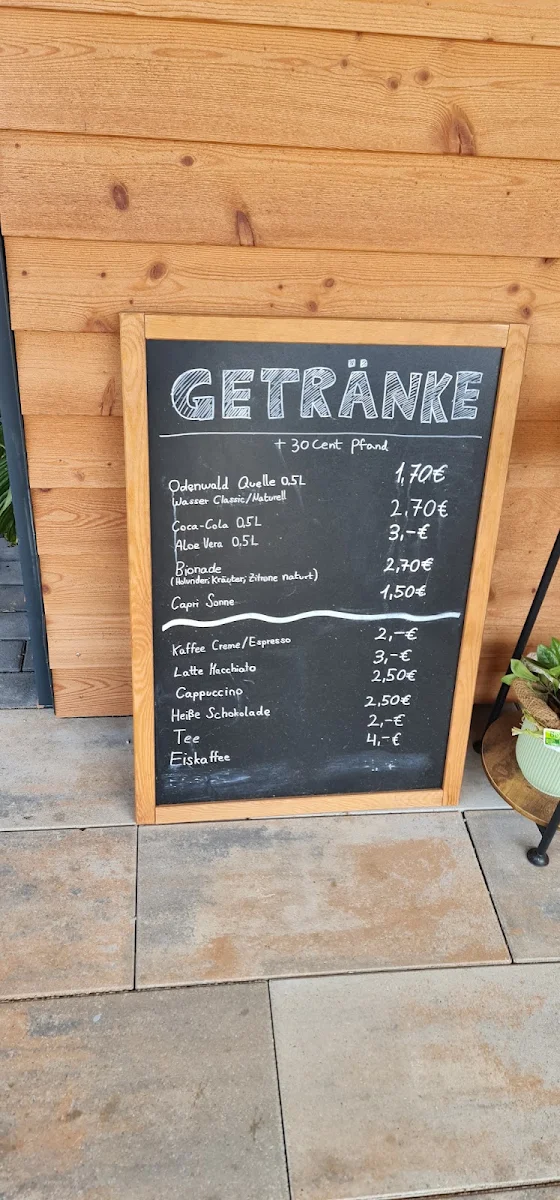 GETRÄNKE
+ 30 Cent Pfand
Odenwald Quelle 0,5L 1,70€
Wasser Classic/Naturell
Coca-Cola 0,5L 2,70€
Aloe Vera 0,5L 3,-€
Bionade 2,70€
(Holunder, Kräuter, Zitrone naturt)
Capri Sonne 1,50€
Kaffee Creme/Espresso 2,-€
Latte Macchiato 3,-€
Cappuccino 2,50€
Heiße Schokolade 2,50€
Tee 2,-€
Eiskaffee 4,-€